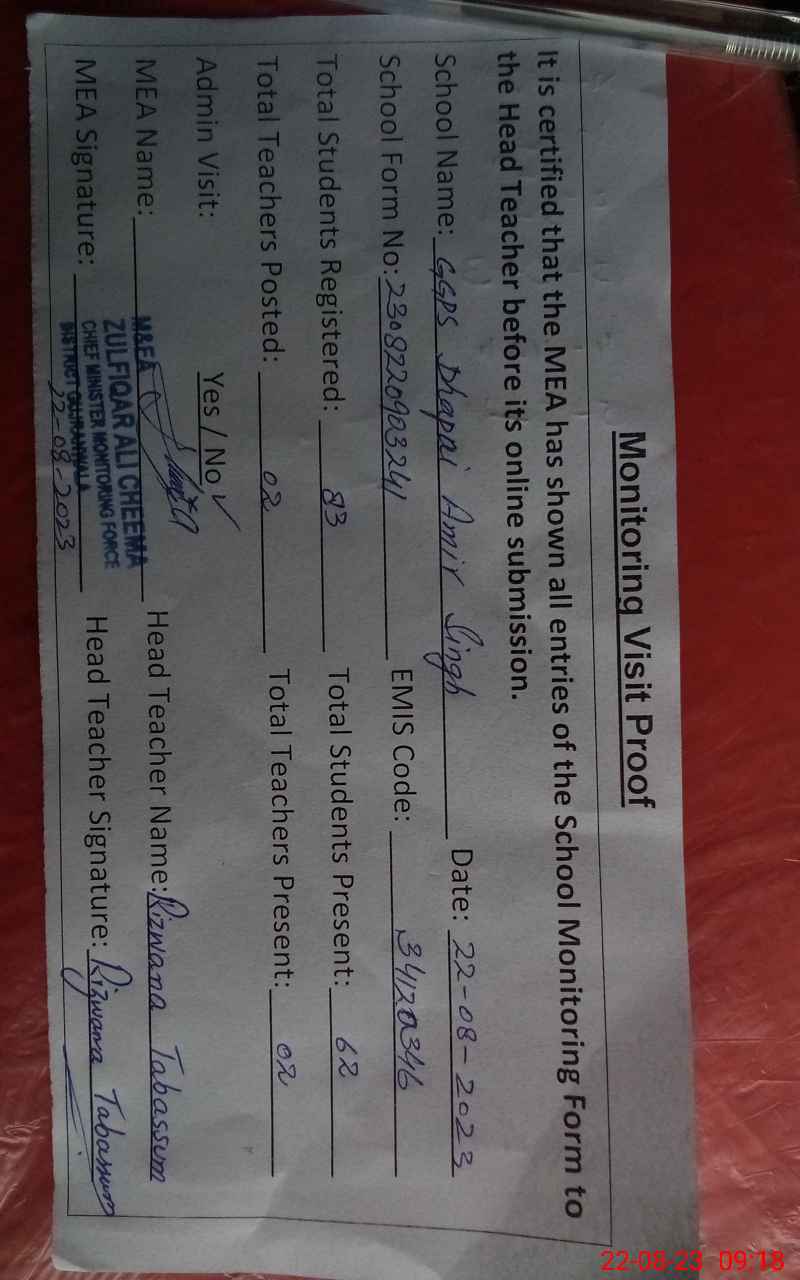 Monitoring Visit Proof
It is certified that the MEA has shown all entries of the School Monitoring Form to
the Head Teacher before its online submission.
School Name: GGPS Dhapai Amir Singh Date: 22-08-2023
School Form No: 2308220903241 EMIS Code: 34120346
Total Students Registered: 83 Total Students Present: 62
Total Teachers Posted: 02 Total Teachers Present: 02
Admin Visit: Yes / No ✓
MEA Name: Head Teacher Name: Rizwana Tabassum
MEA Signature: Head Teacher Signature: Rizwana Tabassum
M&EA
ZULFIQAR ALI CHEEMA
CHIEF MINISTER MONITORING FORCE
DISTRICT GUJRANWALA
22-08-2023
22-08-23 09:18